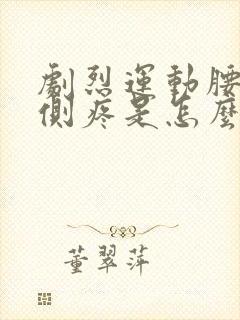 劇烈運動腰
側疼是怎麼
董翠萍